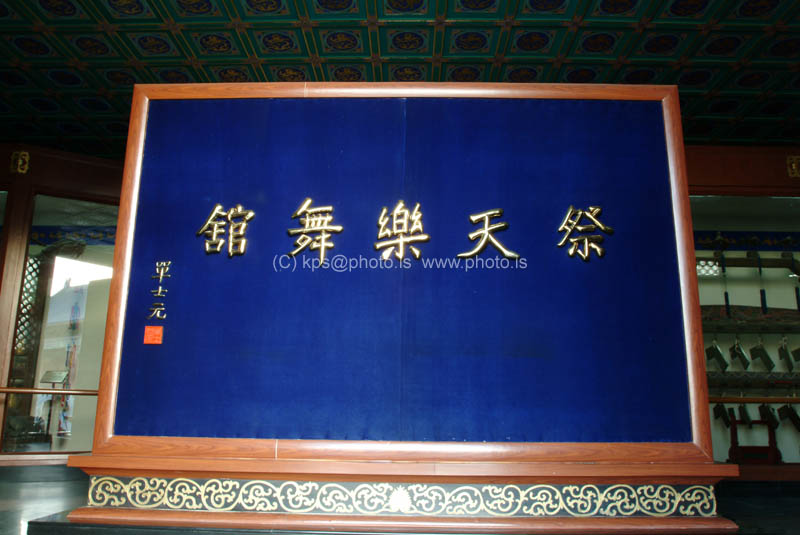 祭天樂舞舘
單士元
(C) kps@photo.is www.photo.is